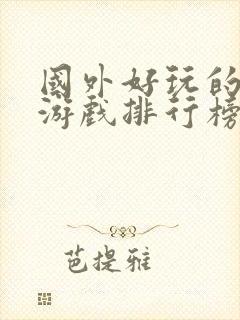 國外好玩的
游戲排行榜
芭提雅